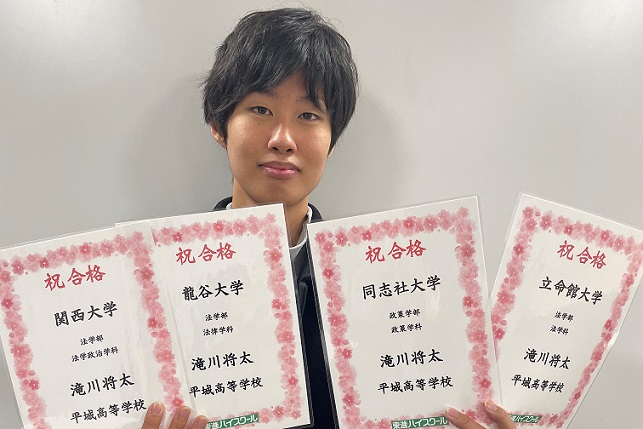 祝合格
関西大学
法学部
法学政治学科
滝川将太
平城高等学校
祝合格
龍谷大学
法学部
法律学科
滝川将太
平城高等学校
東進ハイスクール
祝合格
同志社大学
政策学部
政策学科
滝川将太
平城高等学校
東進ハイスクール
祝合格
立命館大学
法学部
法学科
滝川将太
平城高等学校